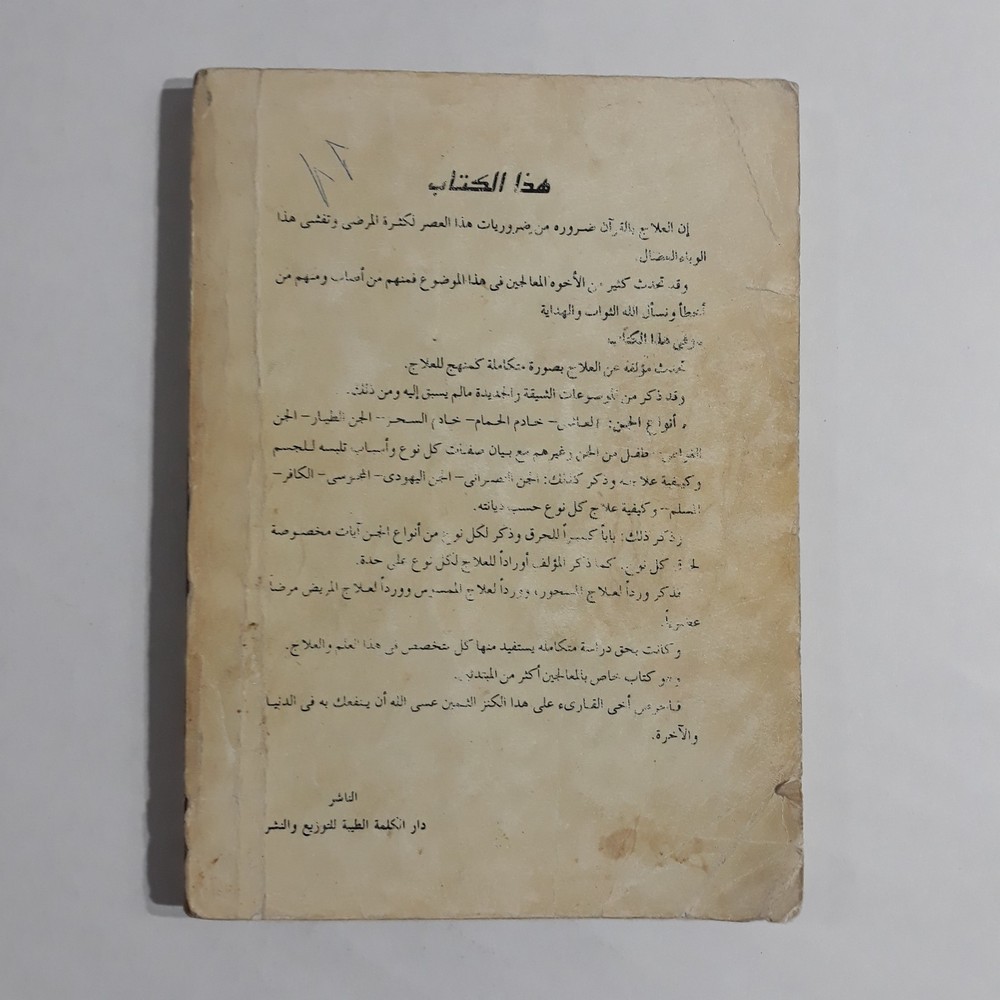 هذا الكتاب
إن العلاج بالقرآن ضروره من ضروريات هذا العصر لكثرة المرضى وتفشى هذا
الوباء العضال.
وقد تحدث كثير من الأخوه المعالجين فى هذا الموضوع فمنهم من أصاب ومنهم من
أخطأ ونسأل الله الثواب والهداية
وفى هذا الكتاب
تحدث مؤلفه عن العلاج بصورة متكاملة كمنهج للعلاج.
وقد ذكر من الموضوعات الشيقة والجديدة مالم يسبق إليه ومن ذلك.
أنواع الجن: العاشق- خادم الحمام- خادم السحر- الجن الطيار- الجن
طفل من الجن وغيرهم مع بيان صفات كل نوع وأسباب تلبسه للجسم
وكيفية علاجه وذكر كذلك: الجن النصرانى- الجن اليهودى- المجوسى- الكافر-
المسلم- وكيفية علاج كل نوع حسب ديانته.
وذكر ذلك: باباً كبيراً للحرق وذكر لكل نوع من أنواع الجن آيات مخصوصة
لحرق كل نوع. كما ذكر المؤلف أوراداً للعلاج لكل نوع على حدة.
فذكر ورداً لعلاج المسحور، وورداً لعلاج الممسوس وورداً لعلاج المريض مرضاً
عضوياً.
وكانت بحق دراسة متكامله يستفيد منها كل متخصص فى هذا العلم والعلاج.
وهو كتاب خاص بالمعالجين أكثر من المبتدئين.
فأحرص أخى القارىء على هذا الكنز الثمين عسى الله أن ينفعك به فى الدنيا
والآخرة.
الناشر
دار الكلمة الطيبة للتوزيع والنشر